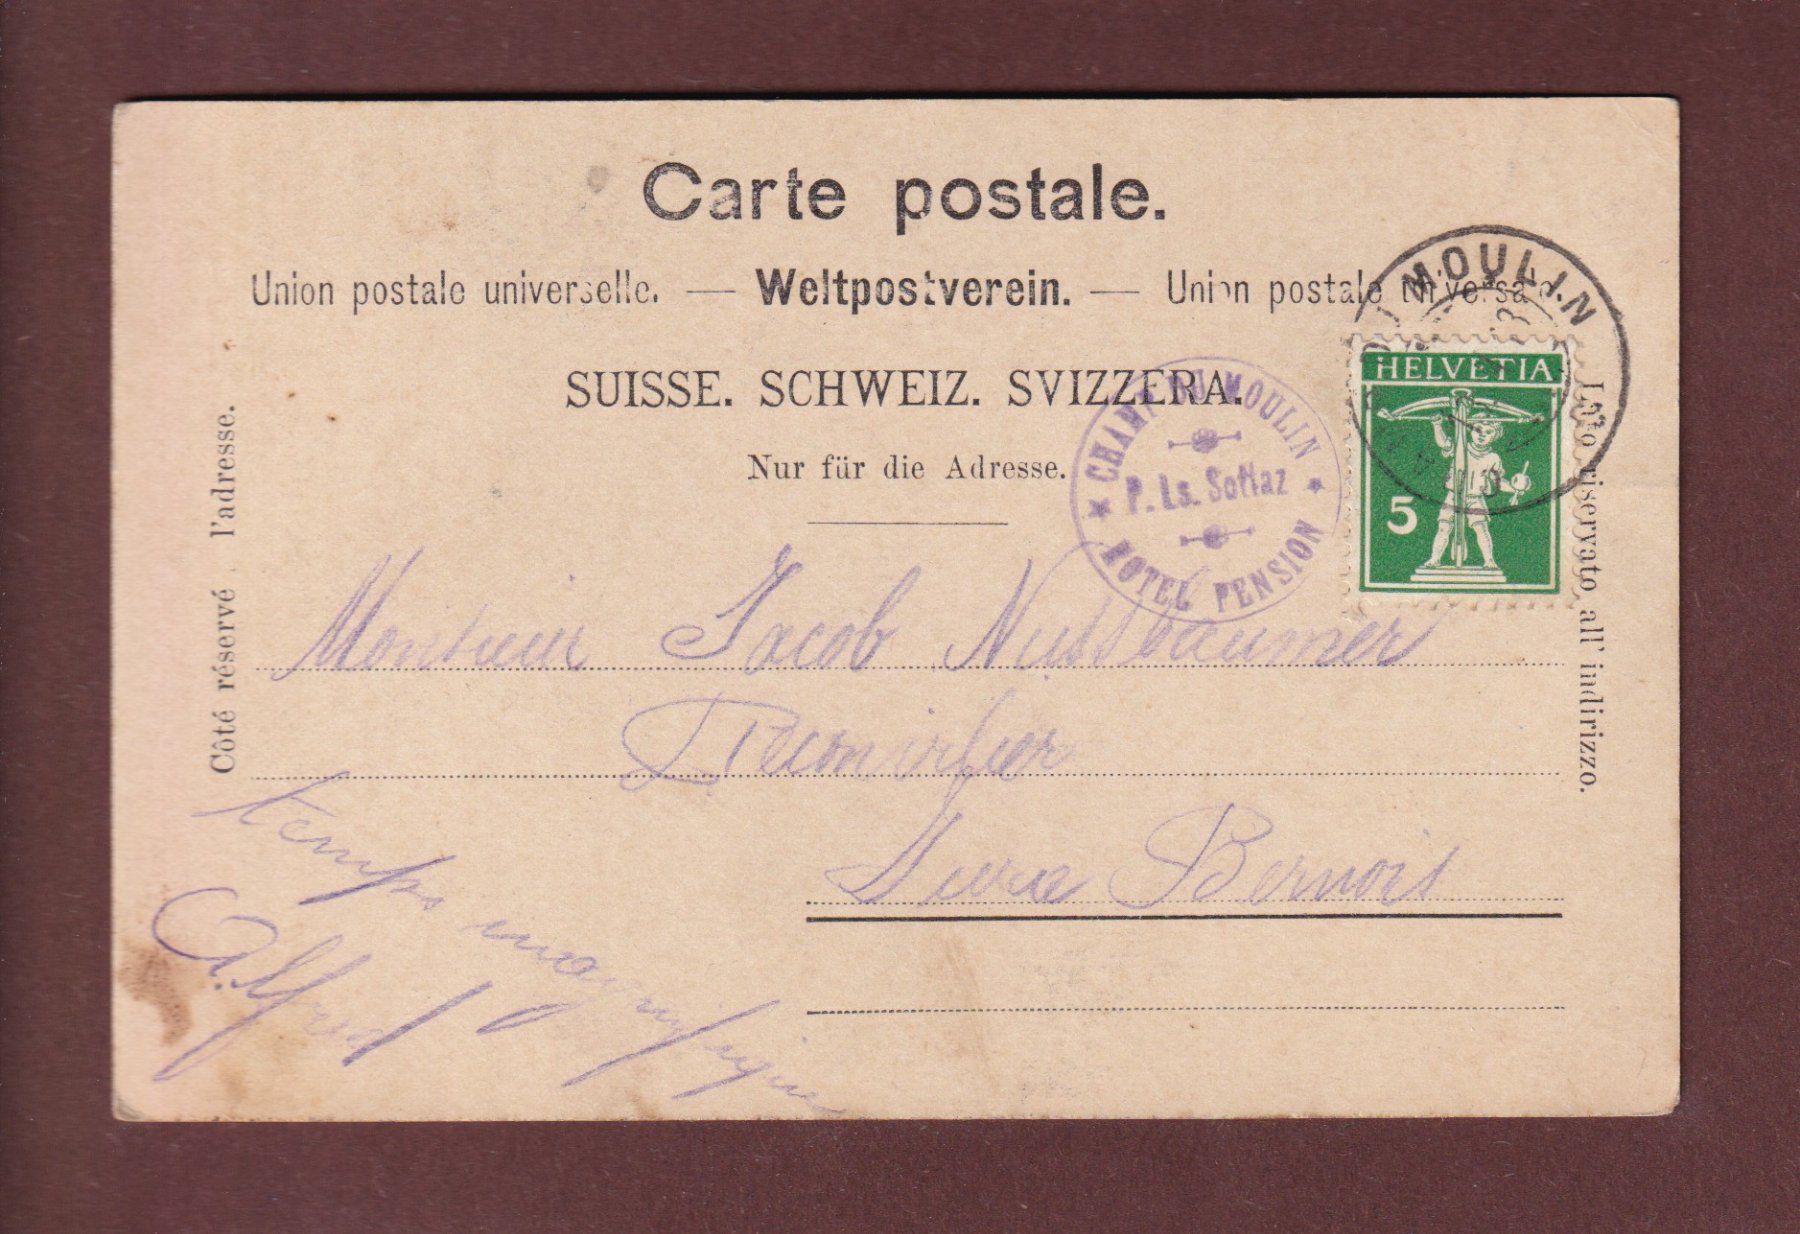 Carte postale.
Union postale universelle. — Weltpostverein. — Union postale universale.
SUISSE. SCHWEIZ. SVIZZERA.
Nur für die Adresse.
Côté réservé l'adresse.
Lato riservato all' indirizzo.
MOULIN
HELVETIA
5
CHAMP DU MOULIN
P. Ls. Sottaz
HOTEL PENSION
Monsieur Jacob Nussbaumer
Jura Bernois
temps magnifique
Alfred